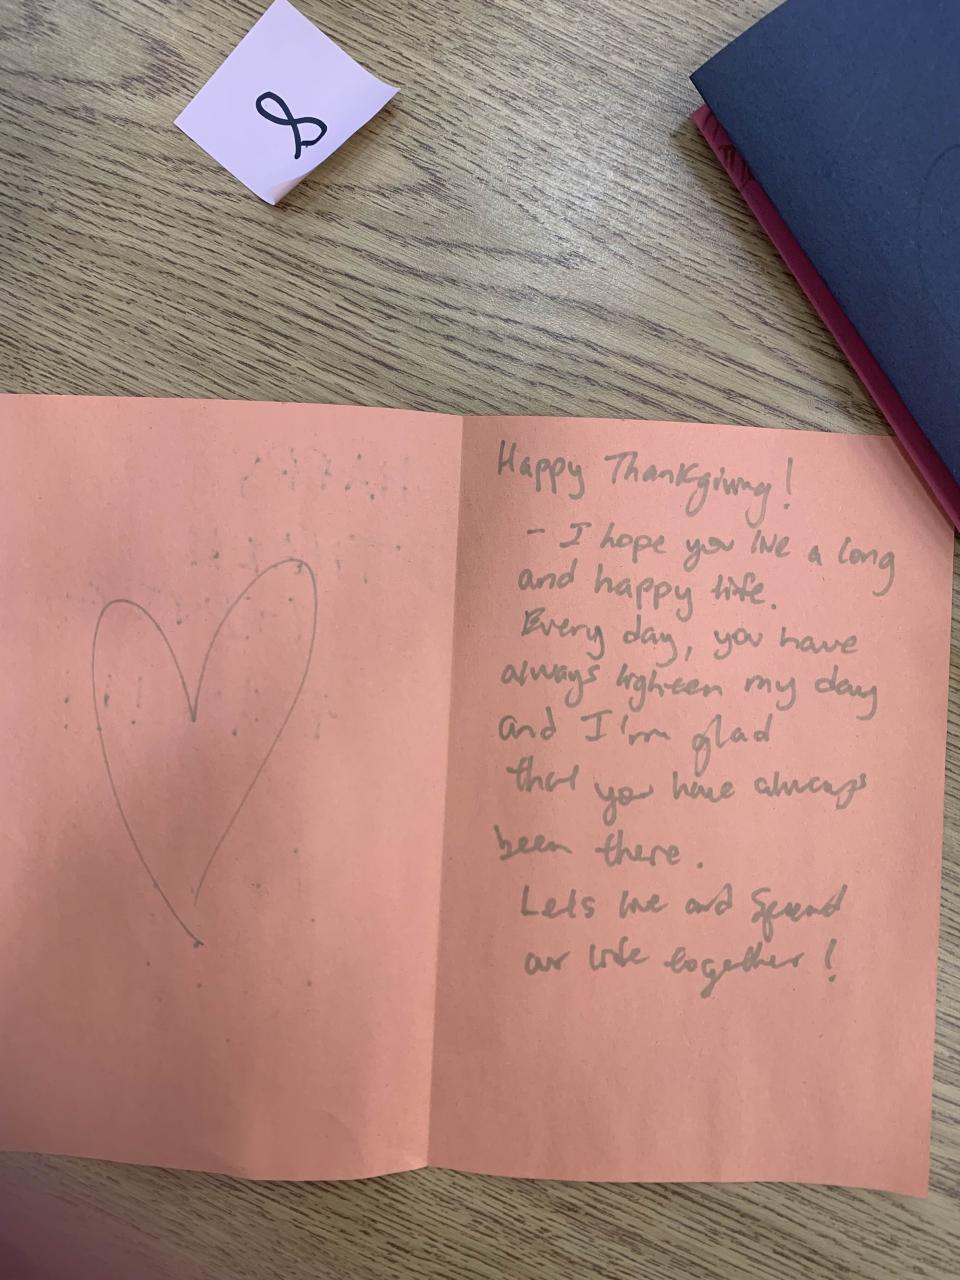 Happy Thankgiving!
- I hope you live a long
and happy life.
Every day, you have
always lighten my day
and I'm glad
that you have always
been there.
Lets live and Spend
our life together!